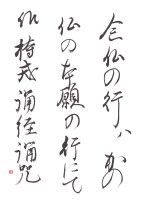 念仏の行ハかの
仏の本願の行にて
候持戒誦経誦呪